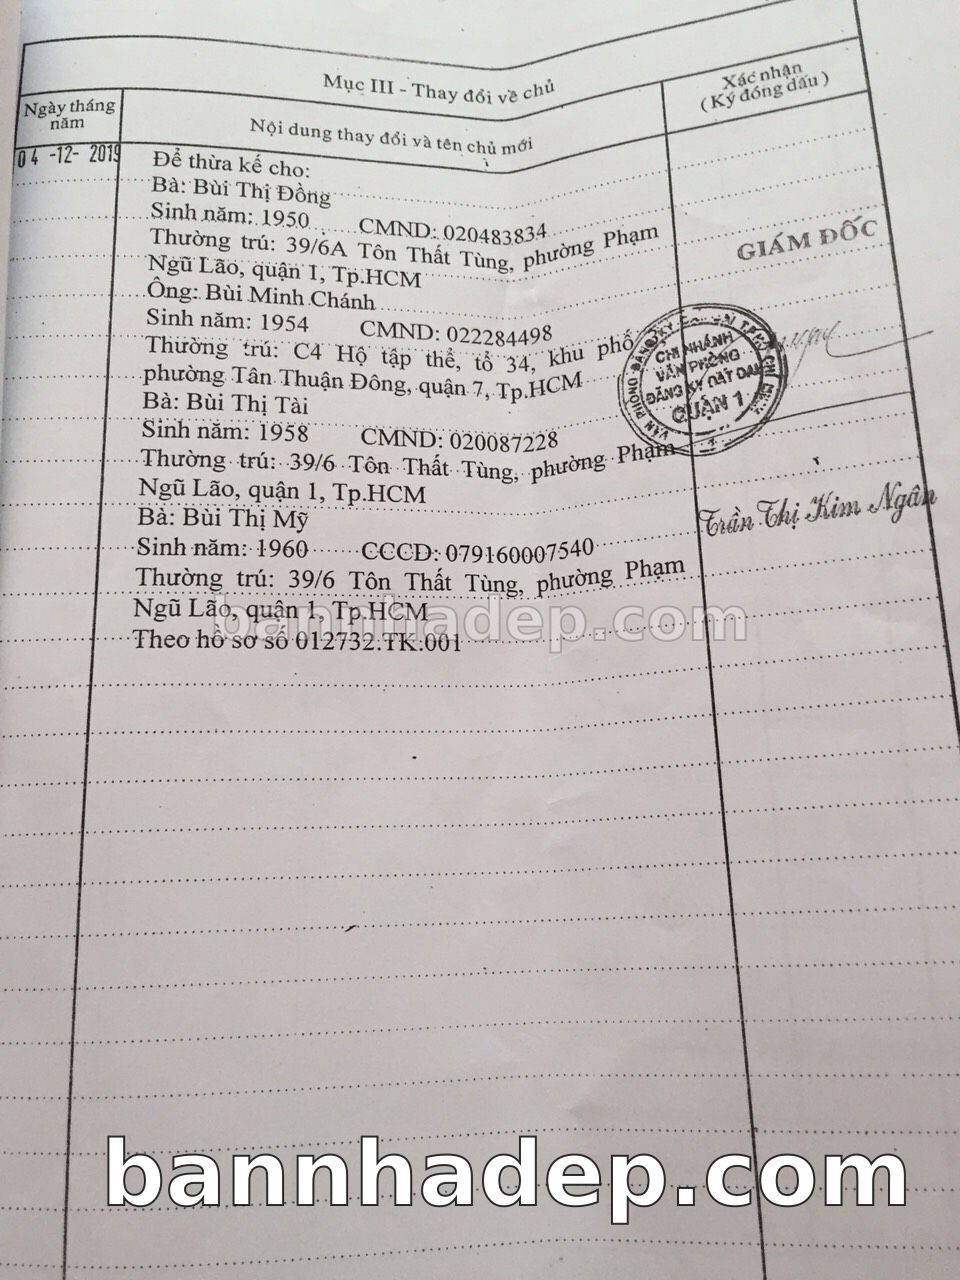 Mục III - Thay đổi về chủ
Ngày tháng năm
Nội dung thay đổi và tên chủ mới
Xác nhận
( Ký đóng dấu )
04 -12- 2019
Để thừa kế cho:
Bà: Bùi Thị Đồng
Sinh năm: 1950 CMND: 020483834
Thường trú: 39/6A Tôn Thất Tùng, phường Phạm
Ngũ Lão, quận 1, Tp.HCM
Ông: Bùi Minh Chánh
Sinh năm: 1954 CMND: 022284498
Thường trú: C4 Hộ tập thể, tổ 34, khu phố
phường Tân Thuận Đông, quận 7, Tp.HCM
Bà: Bùi Thị Tài
Sinh năm: 1958 CMND: 020087228
Thường trú: 39/6 Tôn Thất Tùng, phường Phạm
Ngũ Lão, quận 1, Tp.HCM
Bà: Bùi Thị Mỹ
Sinh năm: 1960 CCCD: 079160007540
Thường trú: 39/6 Tôn Thất Tùng, phường Phạm
Ngũ Lão, quận 1, Tp.HCM
Theo hồ sơ số 012732.TK.001
GIÁM ĐỐC
CHI NHÁNH
VĂN PHÒNG
ĐĂNG KÝ ĐẤT ĐAI
QUẬN 1
Trần Thị Kim Ngân
bannhadep.com
bannhadep.com